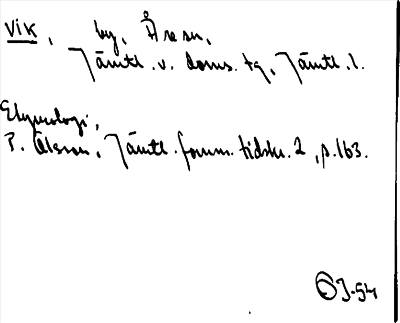 Vik, by, Åresn,
Jämtl. v. doms. tg, Jämtl. l.
Etymologi,
P. Olsson, Jämtl. fornm. tidskr. 2, p. 163.
J-54